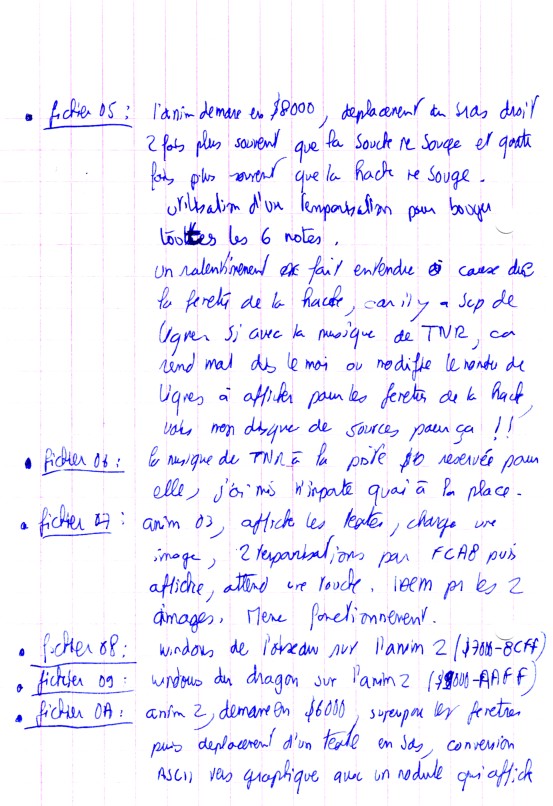 • fichier 05 : l'anim demare en $8000, deplacement du bras droit
2 fois plus souvent que la bouche ne bouge et quatre
fois plus souvent que la hache ne bouge.
utilisation d'une temporisation pour bouger
toutes les 6 notes.
un ralentissement fait entendre à cause de
la fenetre de la hache, car il y a bcp de
lignes si avec la musique de TNR, ca
rend mal dis le moi ou modifie le nombre de
lignes à afficher pour les fenetres de la hache,
vois mon disque de sources pour ça !!
• fichier 06 : la musique de TNR à la piste reservée pour
elle, j'ai mis n'importe quoi à la place.
• fichier 07 : anim 03, affiche les textes, charge une
image, 2 temporisations par FCA8 puis
affiche, attend une touche. IDEM pr les 2
images. Meme fonctionnement.
• fichier 08 : windows de l'oiseau sur l'anim 2 ($7000-8CFF)
• fichier 09 : windows du dragon sur l'anim 2 ($9000-AAFF)
• fichier 0A : anim 2, demare en $6000, superpose les fenetres
puis deplacement d'un texte en bas, conversion
ASCII vers graphique avec un module qui affiche